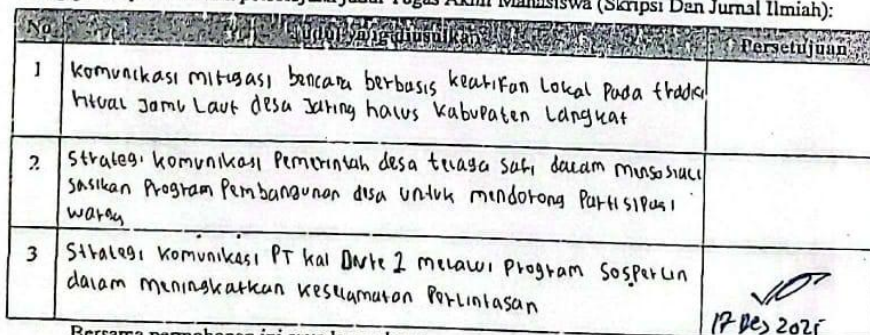 Tugas Akhir Mahasiswa (Skripsi Dan Jurnal Ilmiah):
No Judul yang diusulkan Persetujuan
1 Komunikasi mitigasi bencana berbasis kearifan Lokal Pada tradisi
ritual Jamu Laut desa Jaring halus Kabupaten Langkat
2 Strategi komunikasi Pemerintah desa telaga sati dalam mensosiali
sasikan Program Pembangunan desa untuk mendorong Partisipasi
warga
3 Strategi Komunikasi PT Kai Divre 1 melalui Program Sosperlin
dalam meningkatkan Keselamatan Perlintasan
17 Des 2025
Bersama permohonan ini saya